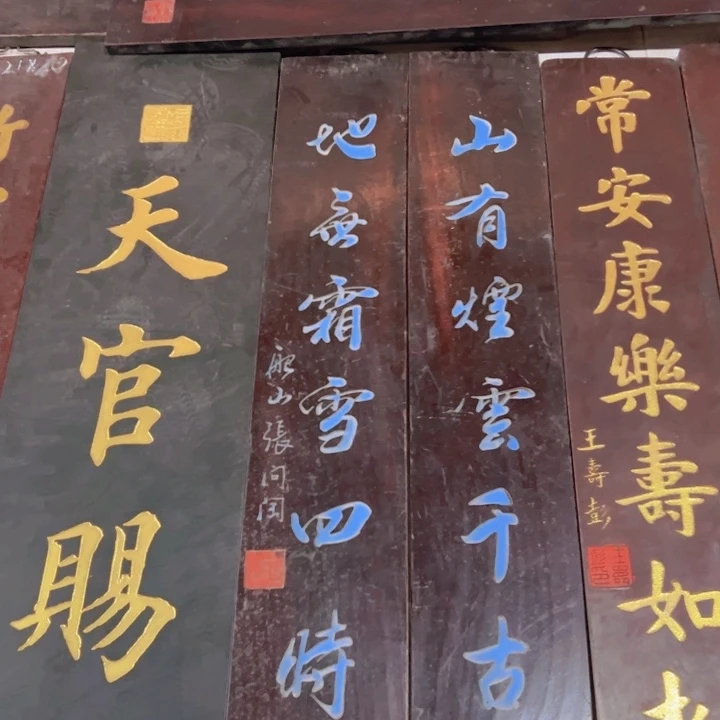 常安康樂壽如
王壽彭
山有煙雲千古
地無霜雪四時
船山張問
天官賜